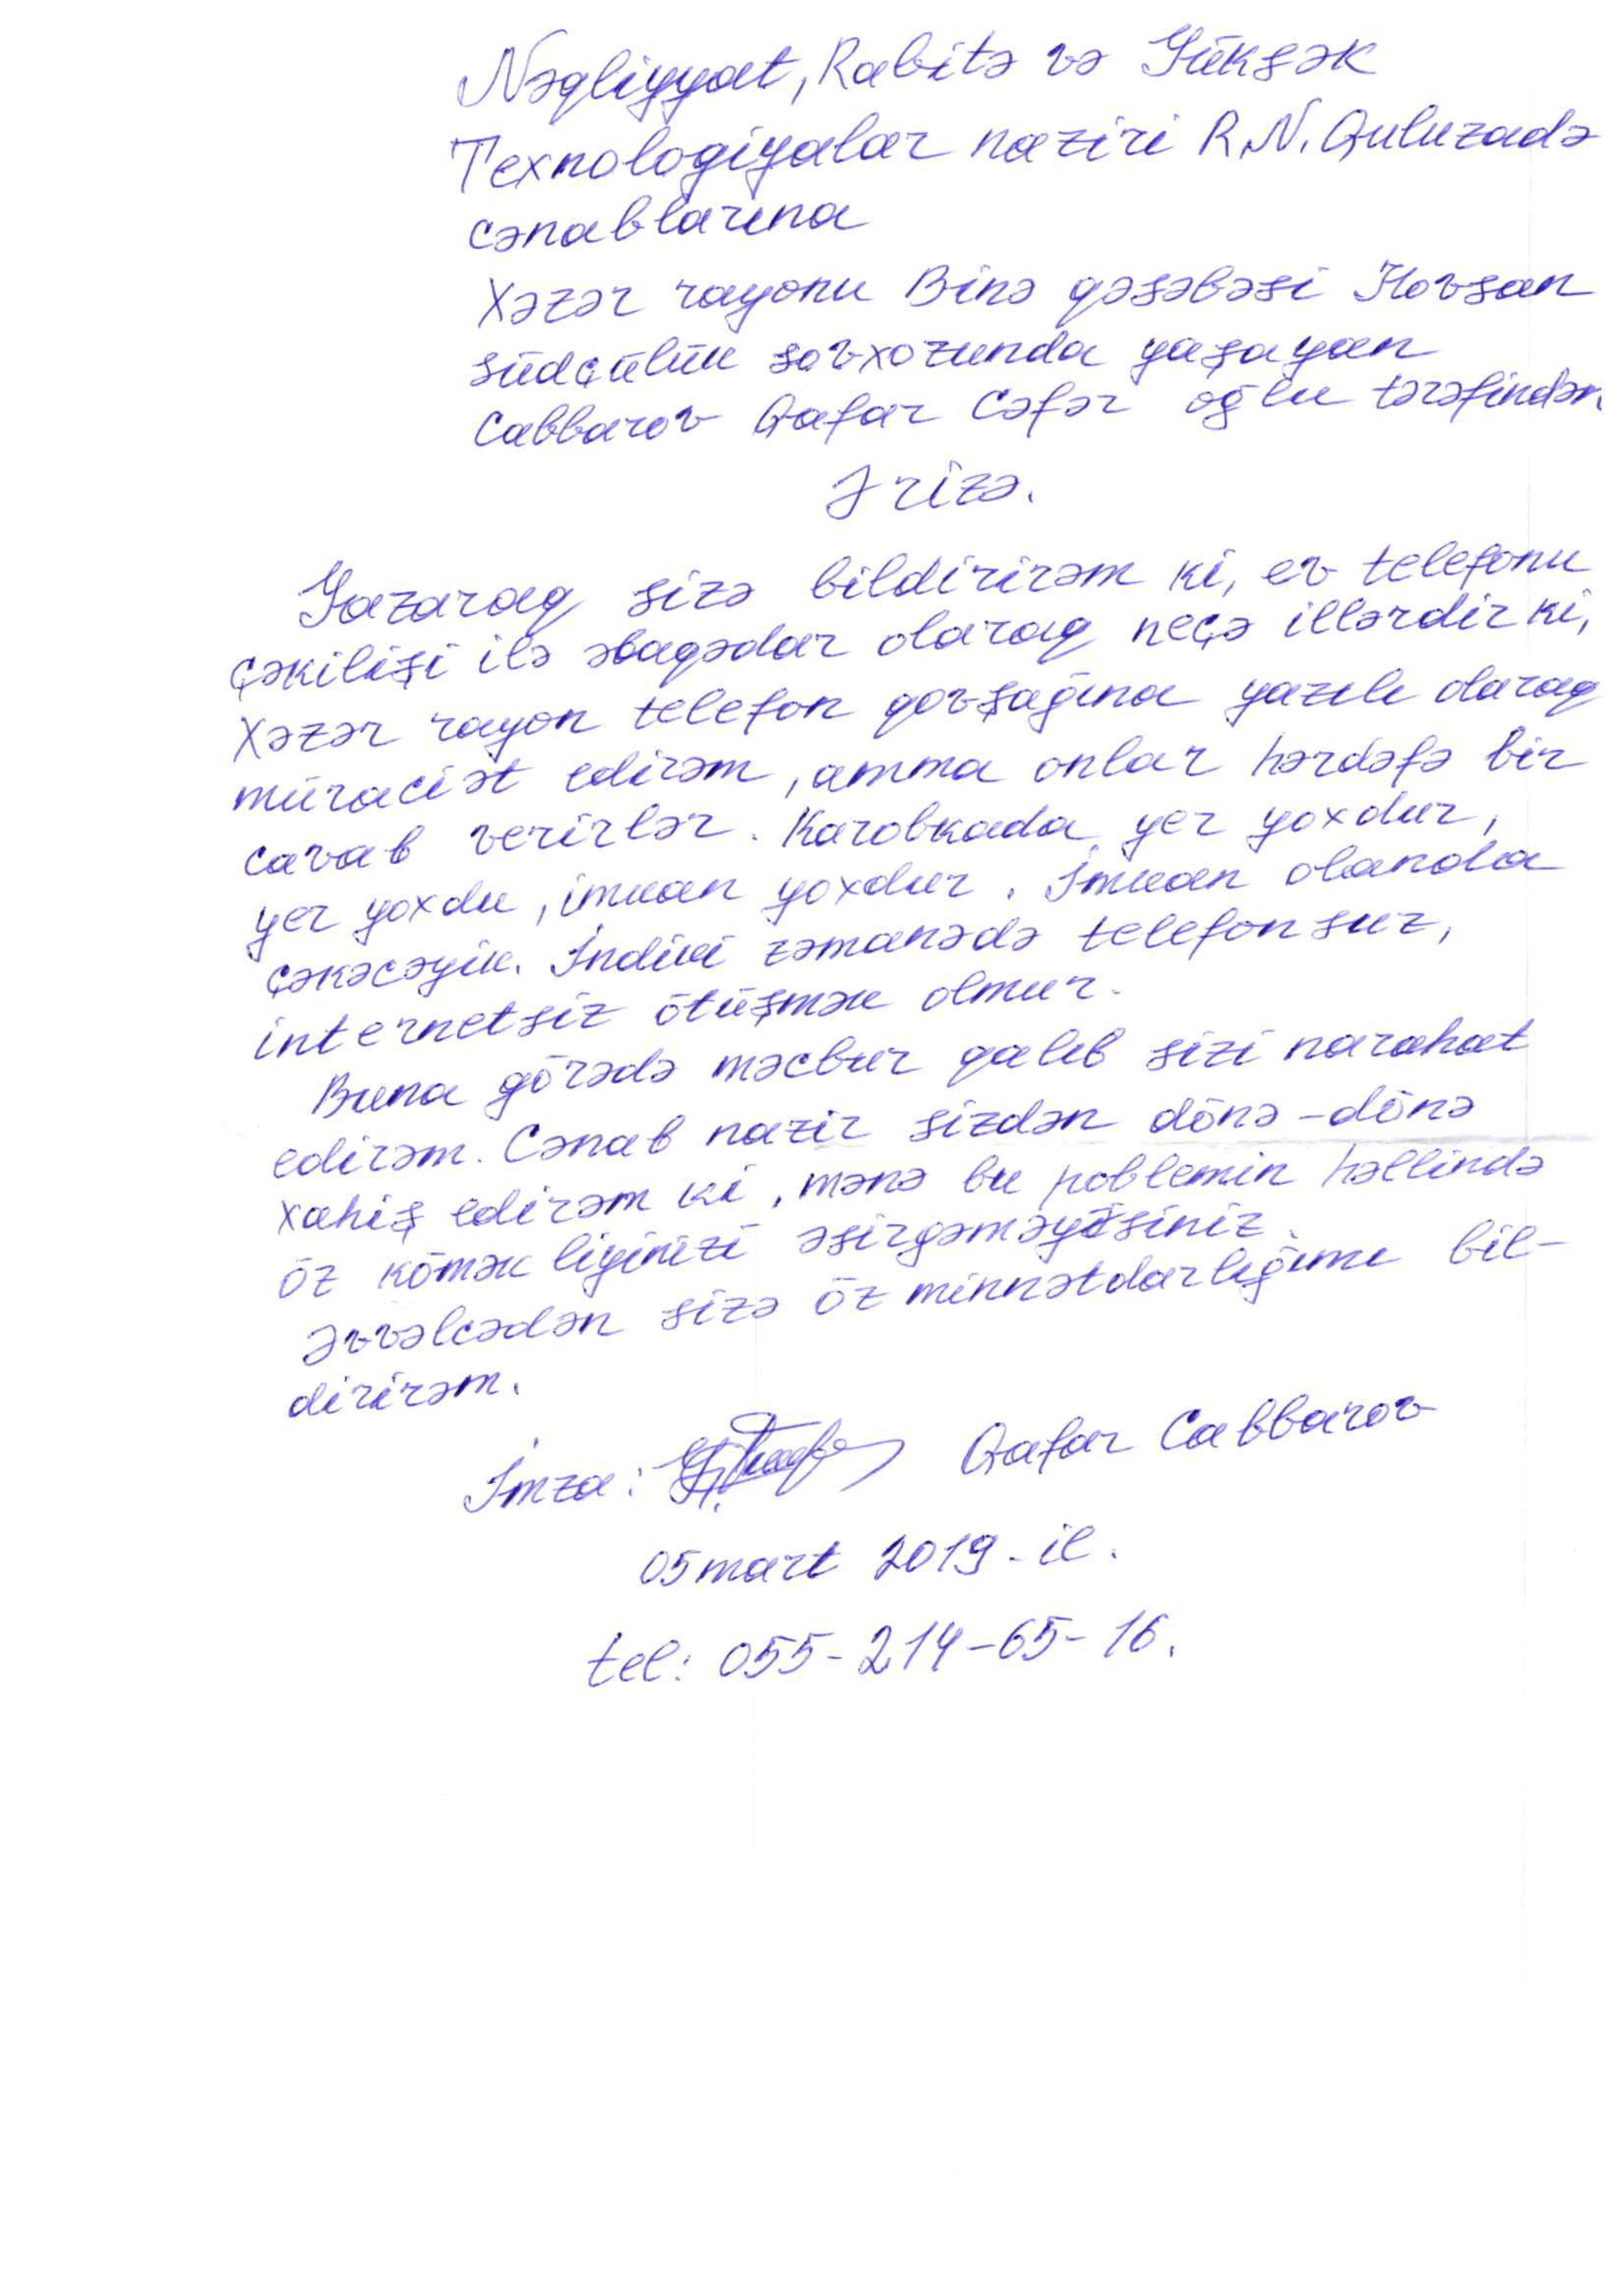 Nəqliyyat, Rabitə və Yüksək
Texnologiyalar naziri R.N. Quluzadə
cənablarına
Xəzər rayonu Binə qəsəbəsi Hovsan
südçülük sovxozunda yaşayan
Cabbarov Qafar Cəfər oğlu tərəfindən
Ərizə.
Yazaraq sizə bildirirəm ki, ev telefonu
çəkilişi ilə əlaqədar olaraq neçə illərdir ki,
Xəzər rayon telefon qovşağına yazılı olaraq
müraciət edirəm, amma onlar hərdəfə bir
cavab verirlər. Karobkada yer yoxdur,
yer yoxdu, imkan yoxdur. İmkan olanda
çəkəcəyik. İndiki zəmanədə telefonsuz,
internetsiz ötüşmək olmur.
Buna görədə məcbur qalıb sizi narahat
edirəm. Cənab nazir sizdən dönə-dönə
xahiş edirəm ki, mənə bu poblemin həllində
öz köməkliyinizi əsirgəməyəsiniz.
Əvvəlcədən sizə öz minnətdarlığımı bil-
dirirəm.
İmza: Qafar Cabbarov
05 mart 2019-il.
tel: 055-214-65-16.